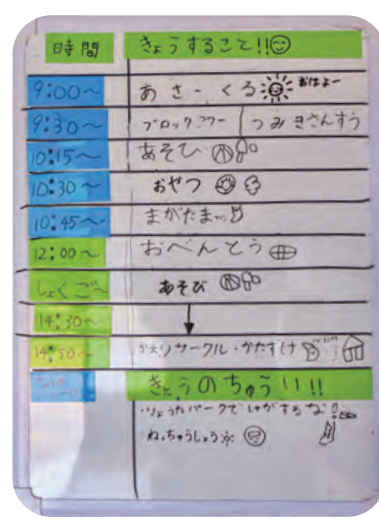 時間 きょうすること!!
9:00~ あさーくる おはよー
9:30~ ブロックタワー つみきさんすう
10:15~ あそび
10:30~ おやつ
10:45~ まがたま
12:00~ おべんとう
しょくご~ あそび
14:30~
14:50~ かえりサークル・かたずけ
きょうのちゅうい!!
・りょうたパークでけがするな!
・ねっちゅうしょう